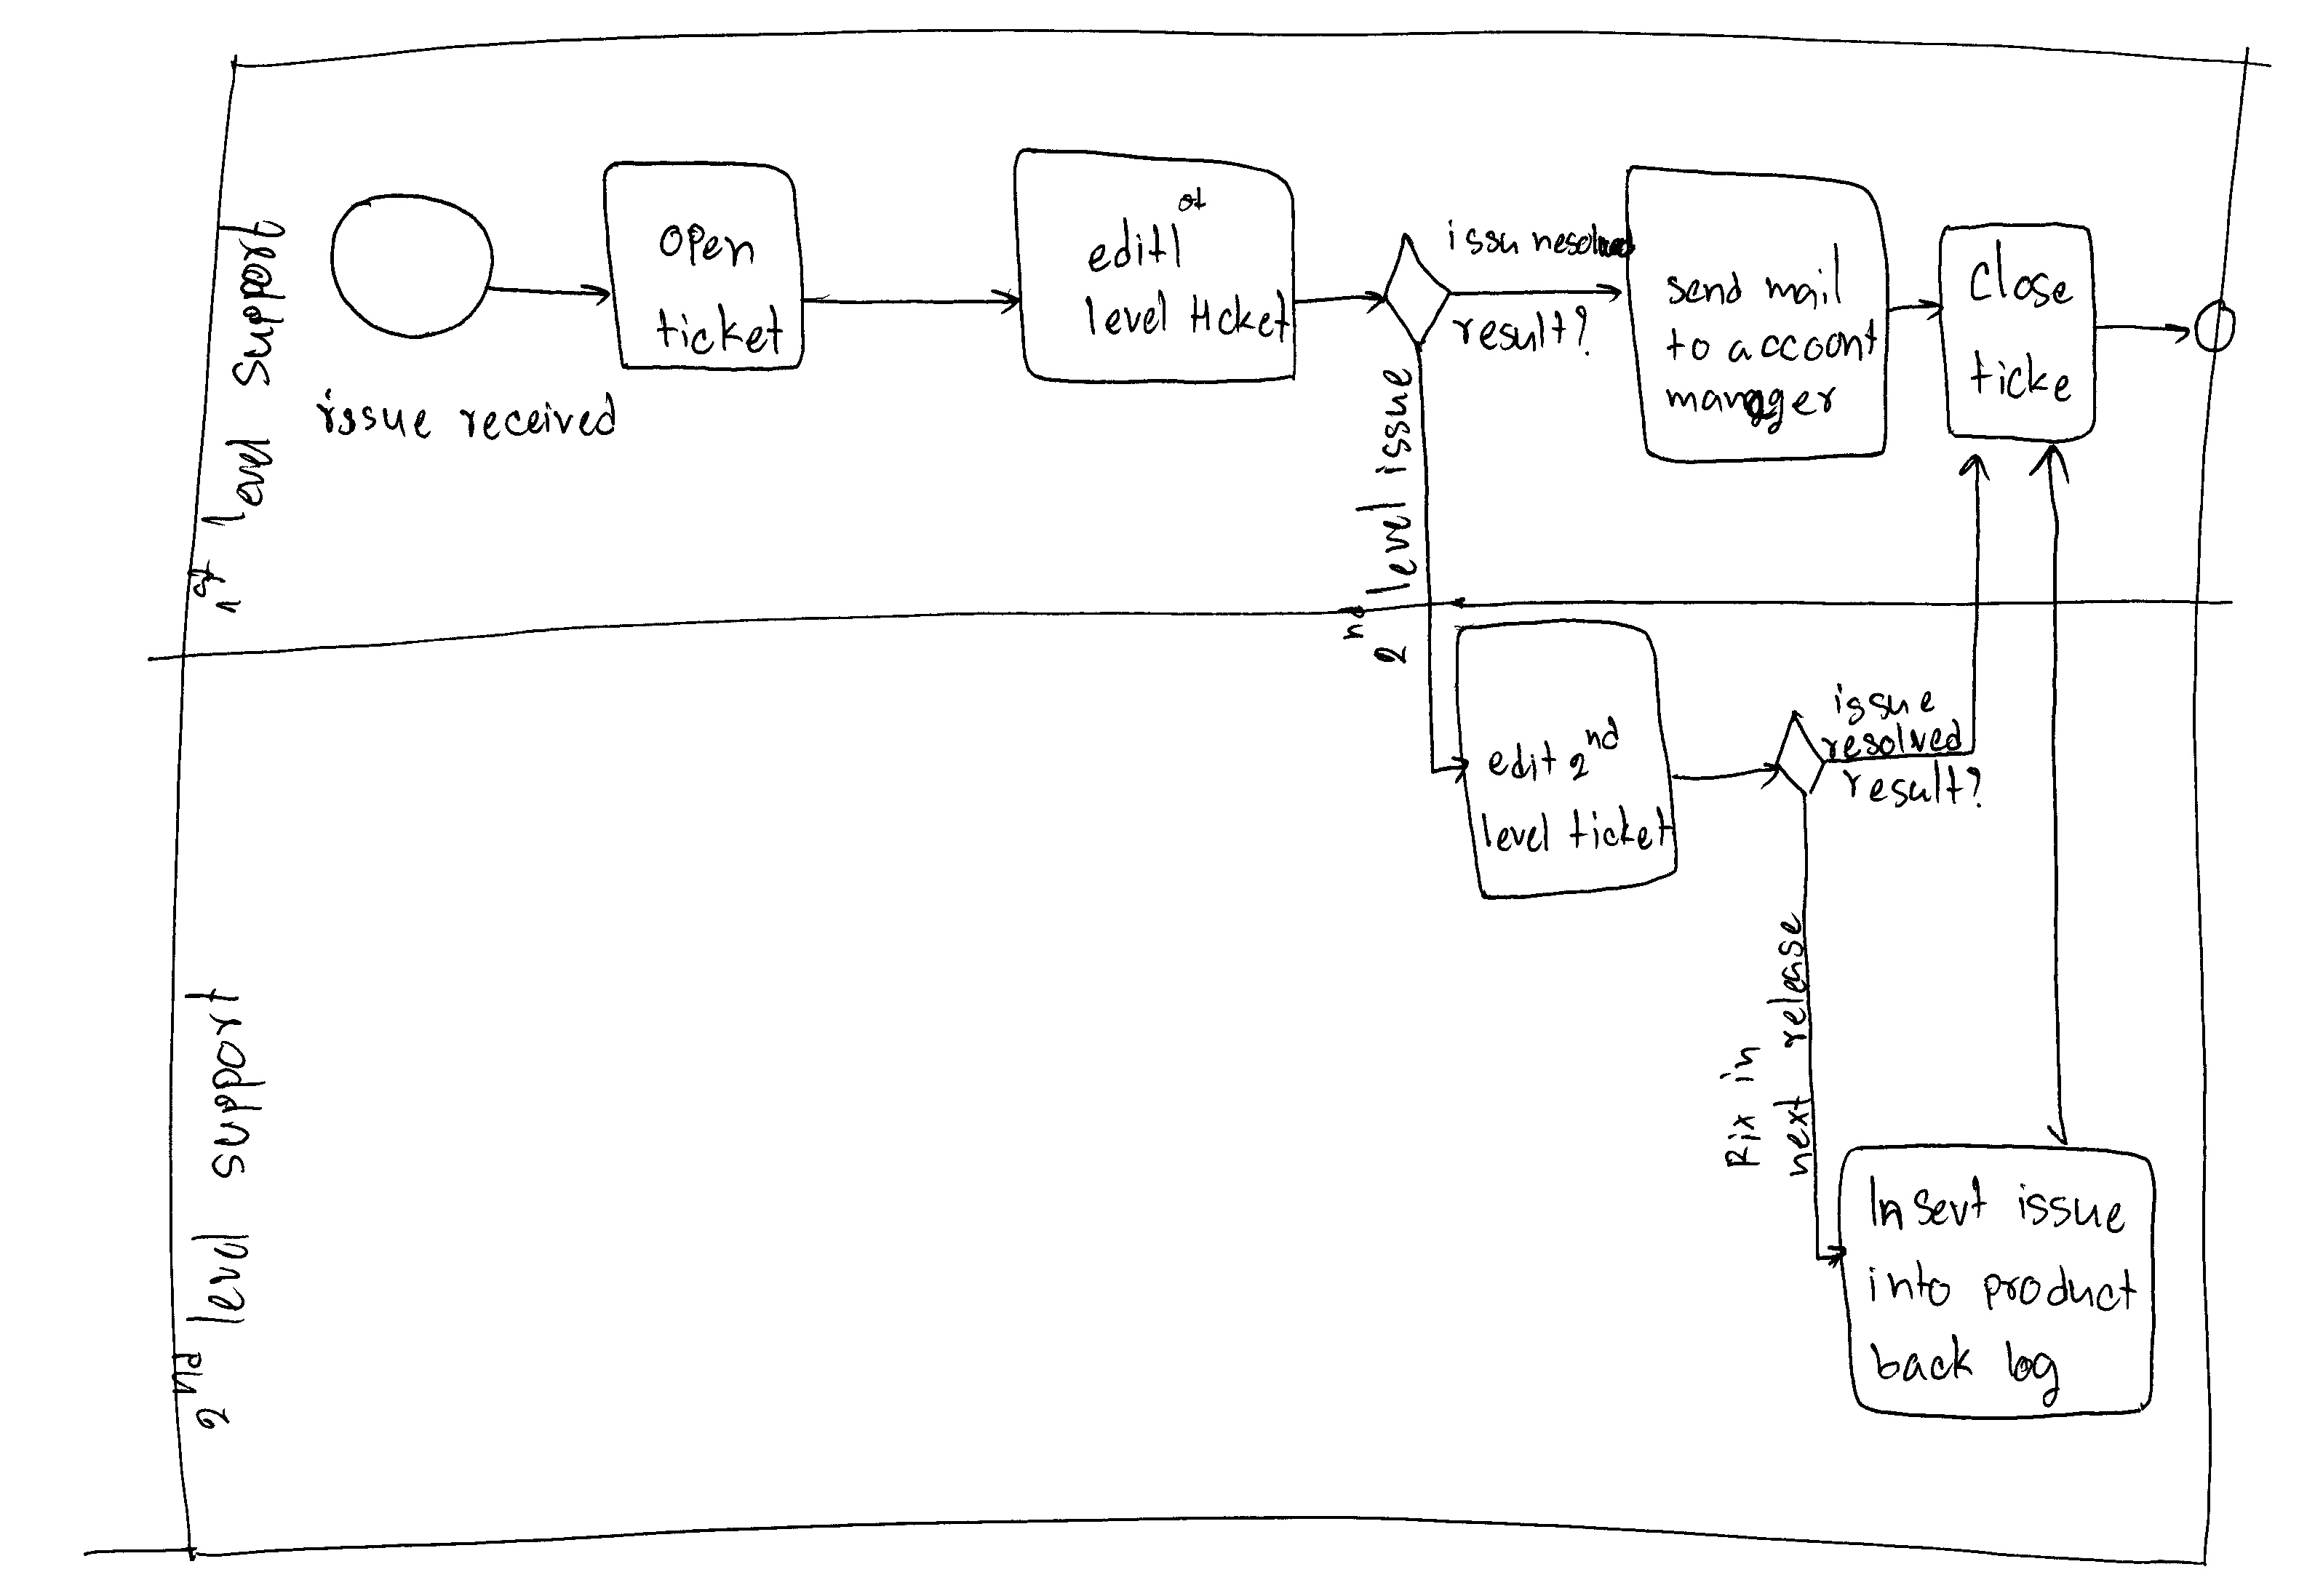 1st level support
issue received
open
ticket
edit 1st
level ticket
issu resolved
result?
send mail
to accoont
manager
close
ticke
2nd level issue
2nd level support
edit 2nd
level ticket
issue
resolved
result?
Fix in
next release
Insert issue
into product
back log